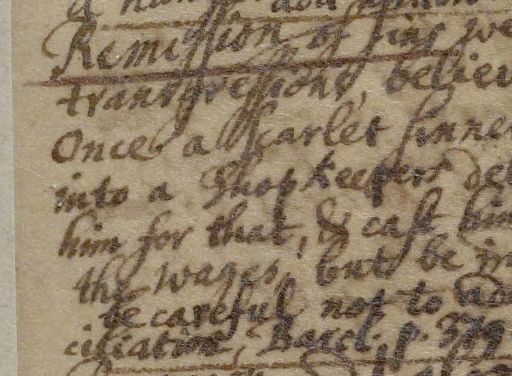 Remission of sins we
transgressions, believ
Once a scarlet sinne
into a Shopkeepers de
him for that, & cast him
the wages, but be in
be careful not to ad
ciliation, Baccl. p. 379